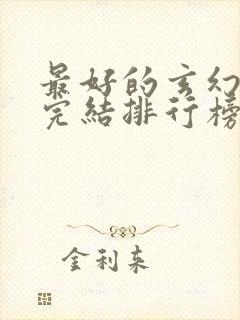 最好的玄幻
完结排行榜
金利来